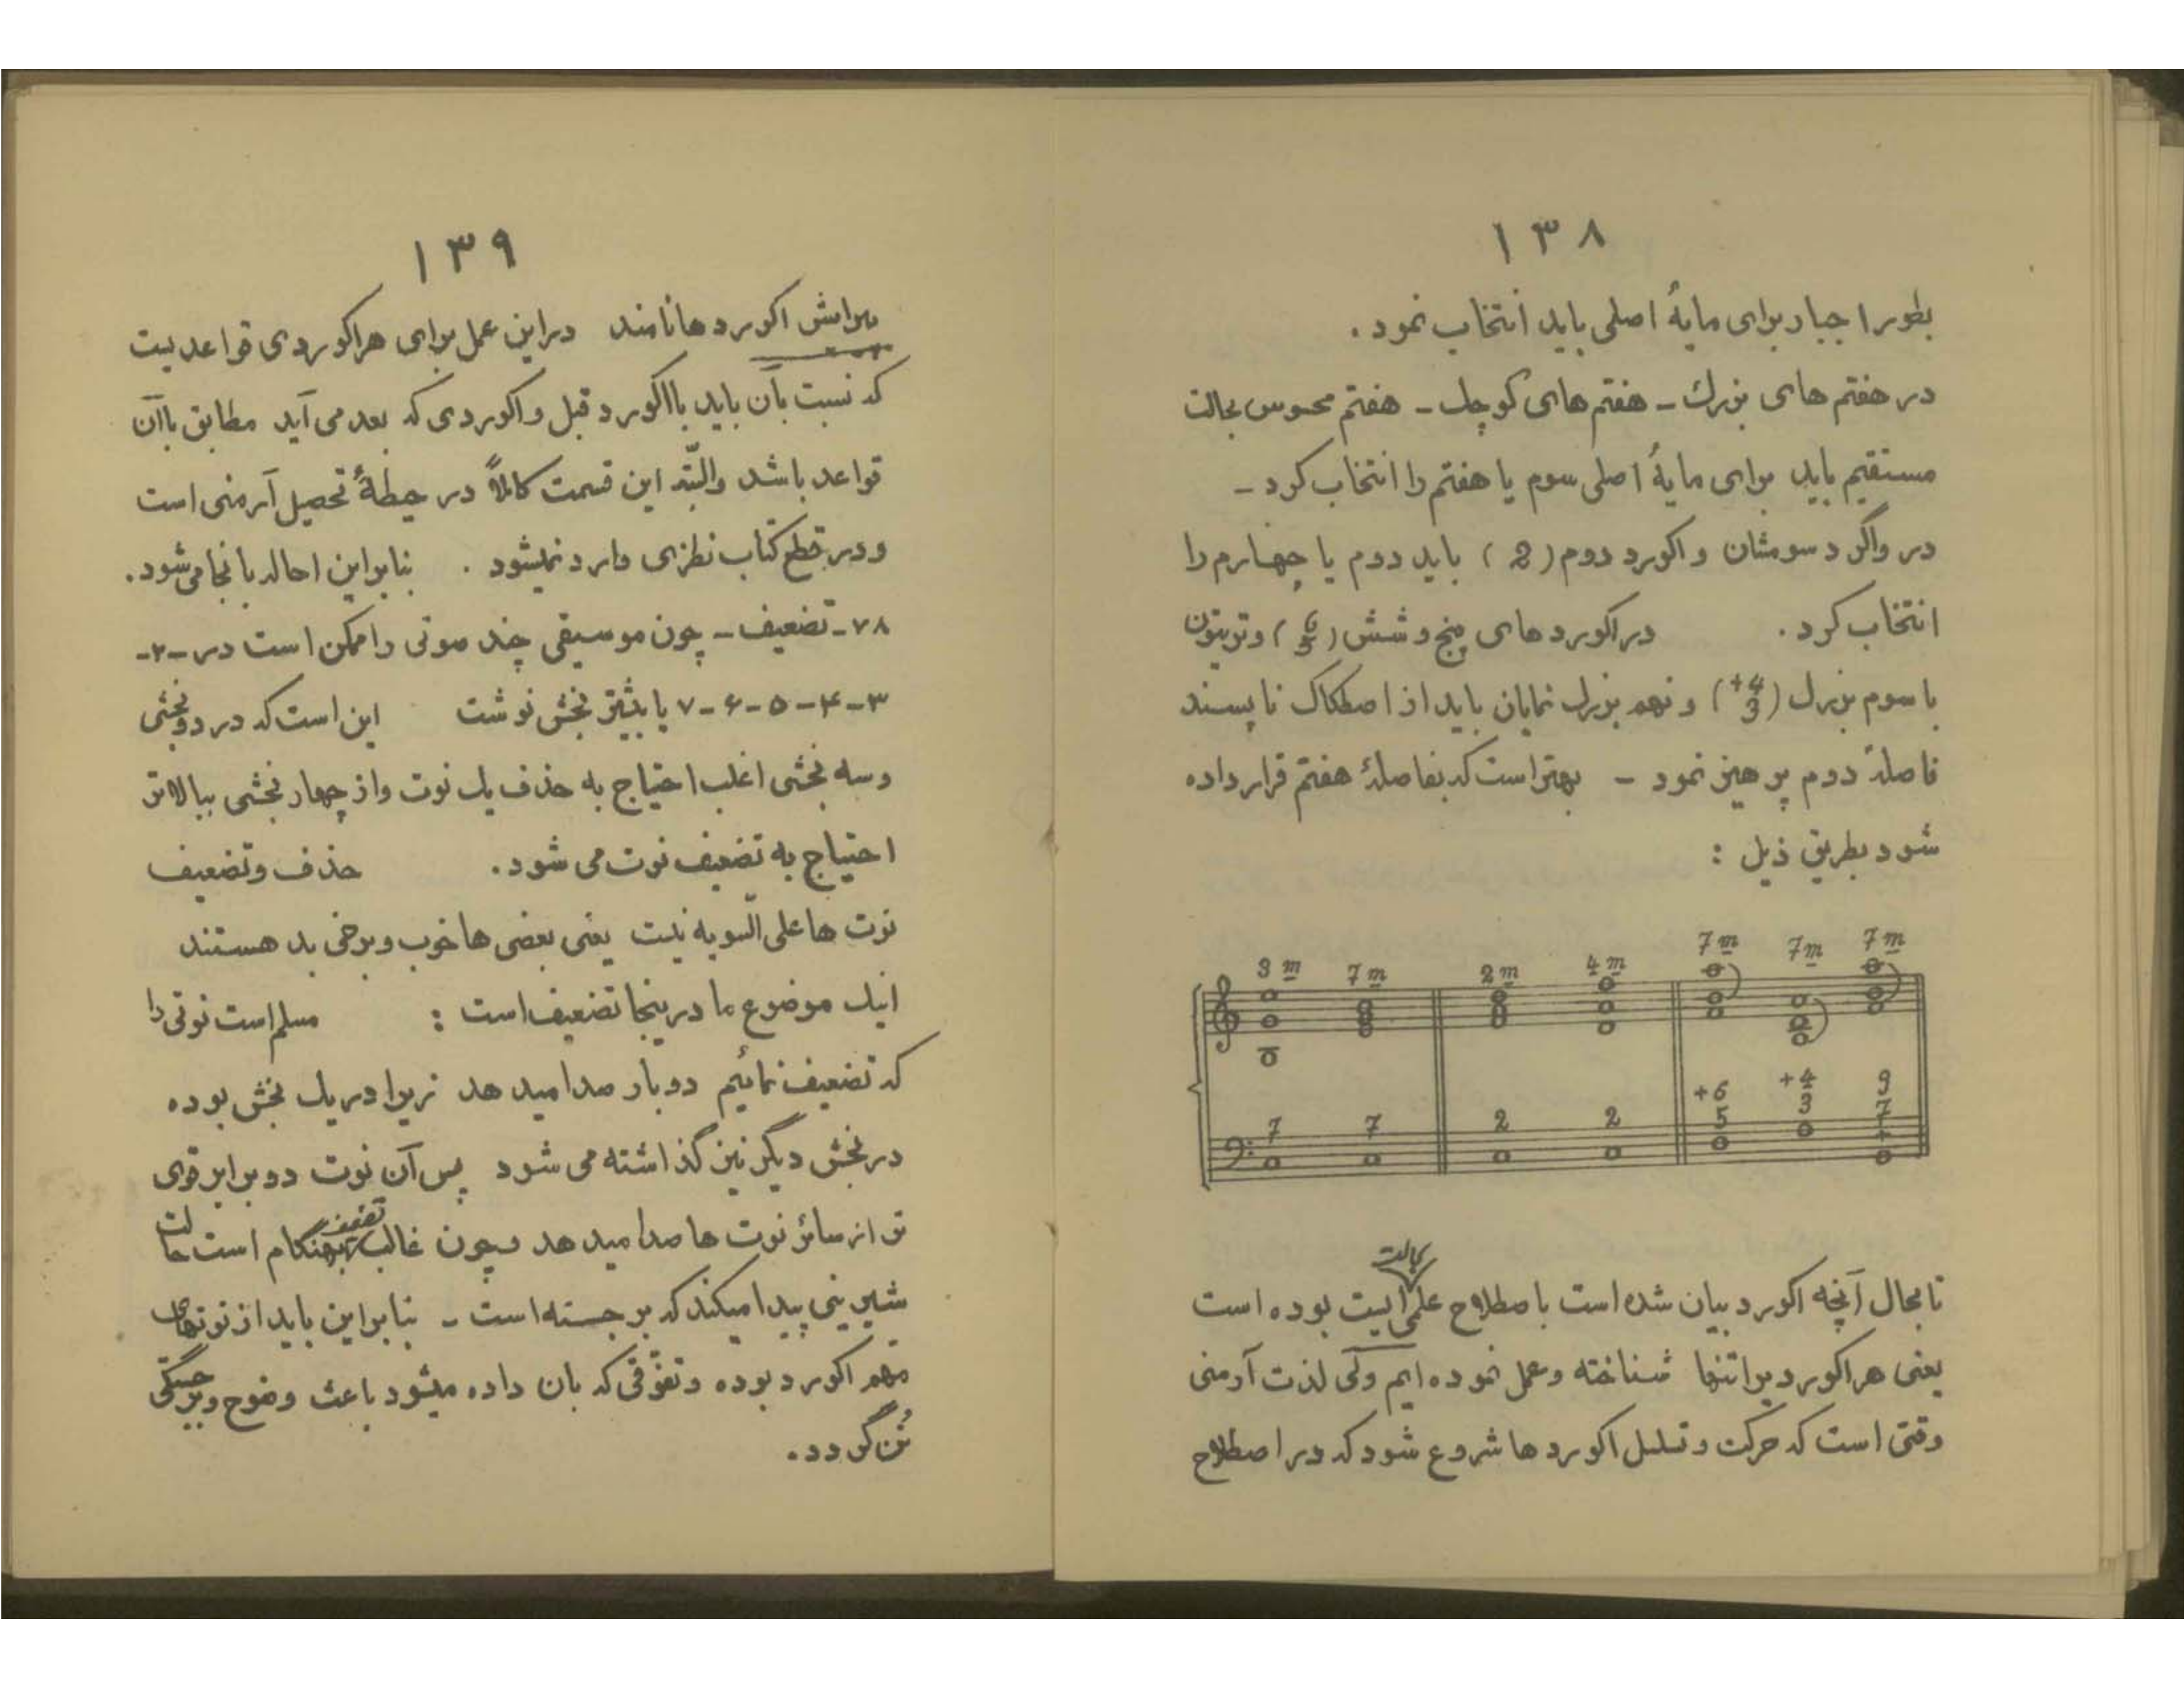 ۱۳۸
بطور اجبار برای مایهٔ اصلی باید انتخاب نمود .
در هفتم های بزرك - هفتم های کوچك - هفتم محسوس بحالت
مستقیم باید برای مایهٔ اصلی سوم یا هفتم را انتخاب کرد -
در واگرد سومشان و اکورد دوم ( 2 ) باید دوم یا چهارم را
انتخاب کرد . در اکورد های پنج و شش ( 6 5 ) و تریتون
با سوم بزرك ( +4 3 ) و نهم بزرك نمایان باید از اصطکاك ناپسند
فاصلهٔ دوم پرهیز نمود - بهتر است که بفاصلهٔ هفتم قرار داده
شود بطریق ذیل :
3 m 7 m 2 m 4 m 7 m 7 m 7 m
7 7 2 2 +6 5 +4 3 9 7 +
بحالت
تا بحال آنچه اکورد بیان شده است باصطلاح علمی ایست بوده است
یعنی هر اکورد براتنها شناخته و عمل نموده ایم ولی لذت آرمنی
وقتی است که حرکت و تسلسل اکورد ها شروع شود که در اصطلاح
۱۳۹
پیرایش اکورد ها نامند در این عمل برای هر اکوردی قواعدیست
که نسبت بآن باید با اکورد قبل و اکوردی که بعد می آید مطابق با آن
قواعد باشد والبتّه این قسمت کاملاً در حیطهٔ تحصیل آرمنی است
و در قطع کتاب نظری وارد نمیشود . بنابراین احاله بانجا می شود .
۷۸- تضعیف - چون موسیقی چند صوتی را ممکن است در -۲-
۳-۴-۵-۶-۷ یا بیشتر بخش نوشت این است که در دوبخشی
و سه بخشی اغلب احتیاج به حذف یك نوت و از چهار بخشی ببالاتر
احتیاج به تضعیف نوت می شود . حذف و تضعیف
نوت ها علی السویه نیست یعنی بعضی ها خوب و برخی بد هستند
اینك موضوع ما در ینجا تضعیف است : مسلم است نوتی را
که تضعیف نمائیم دو بار صدا میدهد زیرا در یك بخش بوده
در بخش دیگر نیز گذاشته می شود پس آن نوت دو برابر قوی
تر از سائر نوت ها صدا میدهد و چون غالب تضعیف بهنگام است حالت
شیرینی پیدا میکند که برجسته است - بنابراین باید از نوتهای
مهم اکورد بوده و تفوّقی که بان داده میشود باعث وضوح و برجستگی
تُن گردد .